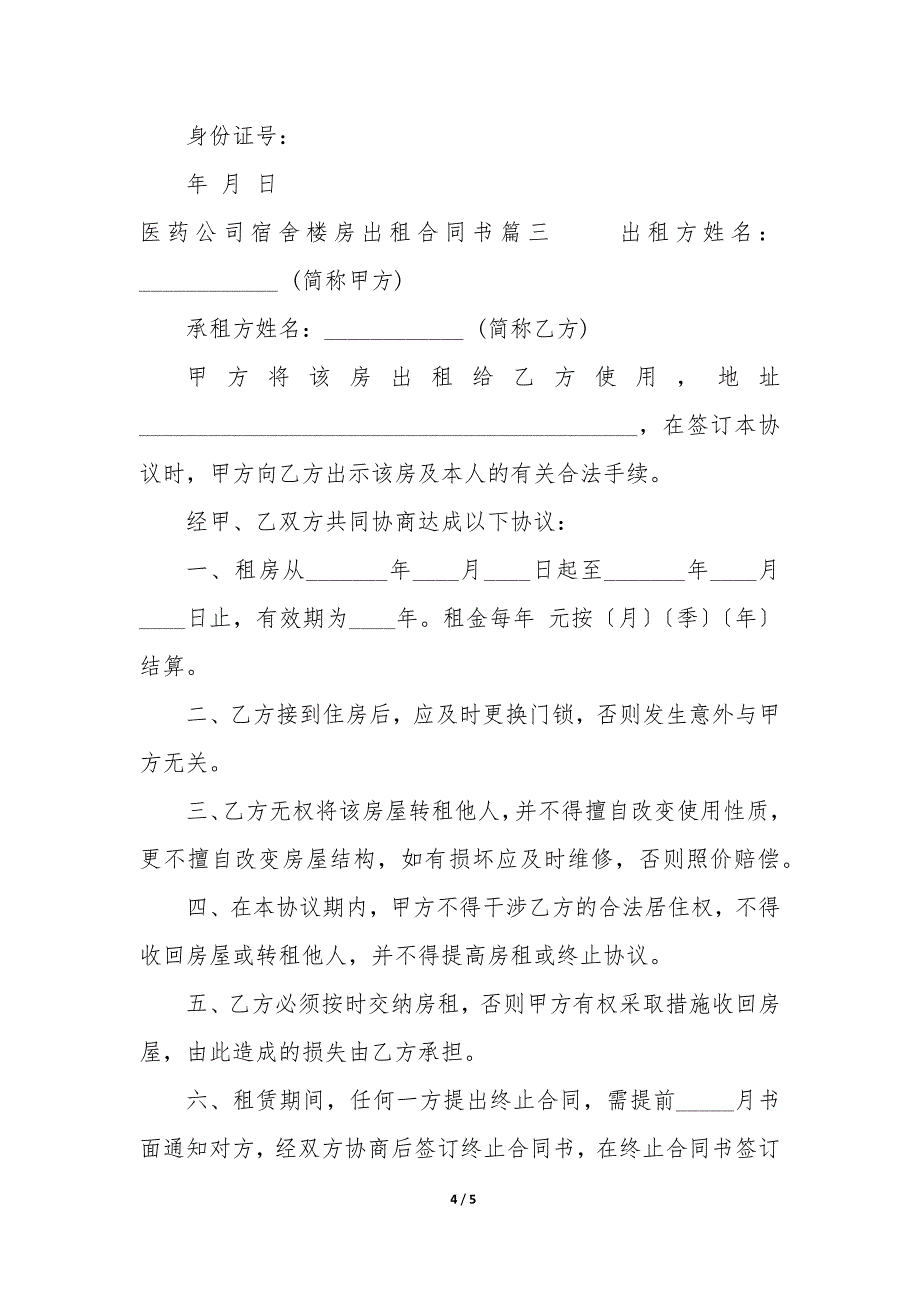 身份证号：
年 月 日
医药公司宿舍楼房出租合同书篇三 出租方姓名：
____________ (简称甲方)
承租方姓名：____________ (简称乙方)
甲方将该房出租给乙方使用，地址
___________________________________________，在签订本协
议时，甲方向乙方出示该房及本人的有关合法手续。
经甲、乙双方共同协商达成以下协议：
一、租房从_______年____月____日起至_______年____月
____日止，有效期为____年。租金每年 元按〔月〕〔季〕〔年〕
结算。
二、乙方接到住房后，应及时更换门锁，否则发生意外与甲
方无关。
三、乙方无权将该房屋转租他人，并不得擅自改变使用性质，
更不擅自改变房屋结构，如有损坏应及时维修，否则照价赔偿。
四、在本协议期内，甲方不得干涉乙方的合法居住权，不得
收回房屋或转租他人，并不得提高房租或终止协议。
五、乙方必须按时交纳房租，否则甲方有权采取措施收回房
屋，由此造成的损失由乙方承担。
六、租赁期间，任何一方提出终止合同，需提前_____月书
面通知对方，经双方协商后签订终止合同书，在终止合同书签订
4 / 5